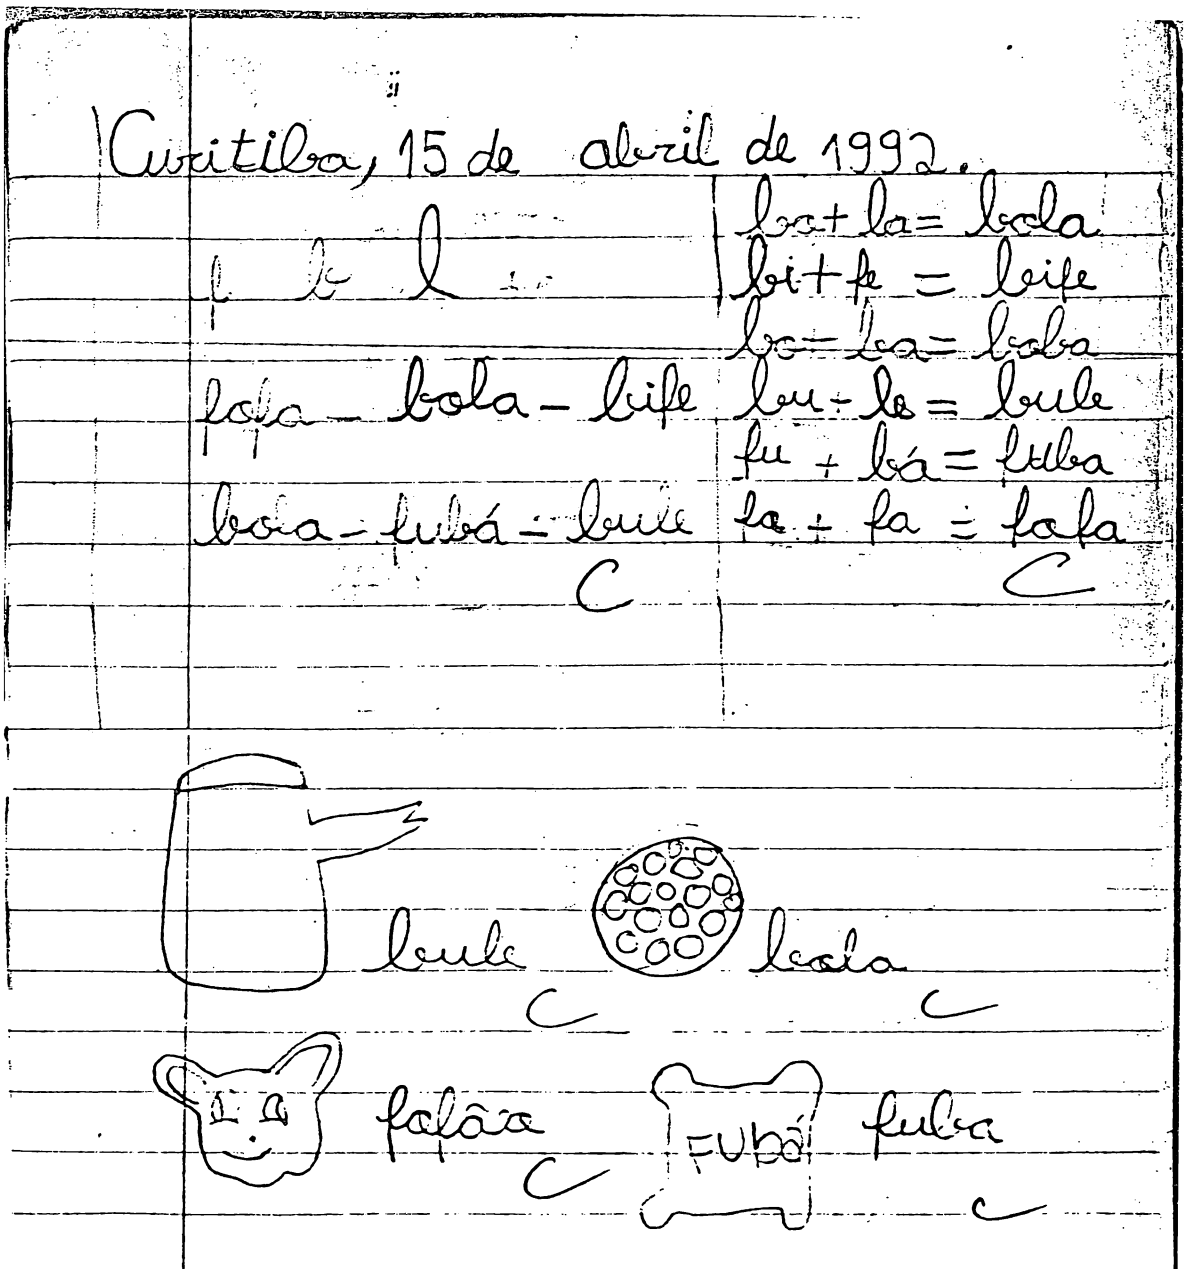 Curitiba, 15 de abril de 1992.
f b l
fofa - bola - bife
boia - fubá - bule
C
bo + la = bola
bi + fe = bife
bo - ba = boba
bu - le = bule
fu + bá = fuba
fo + fa = fofa
C
bule
C
bola
C
fofão
C
FUbá
fuba
C